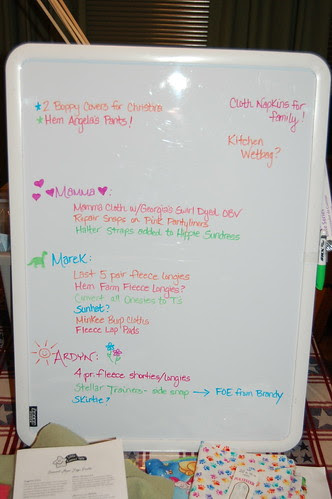 * 2 Boppy Covers for Christina
* Hem Angela's Pants!
Cloth Napkins for
family!
Kitchen
Wetbag?
Mamma:
Mamma Cloth w/Georgia's Swirl Dyed OBV
Repair Snaps on Pink Pantyliners
Halter Straps added to Hippie Sundress
Marek:
Last 5 pair fleece longies
Hem Farm Fleece Longies?
Convert all Onesies to T's
Sunhat?
Minkee Burp Cloths
Fleece Lap Pads
Ardyn:
4 pr. fleece shorties/longies
Stellar Trainers - side snap → FOE from Brandy
Skirtie?